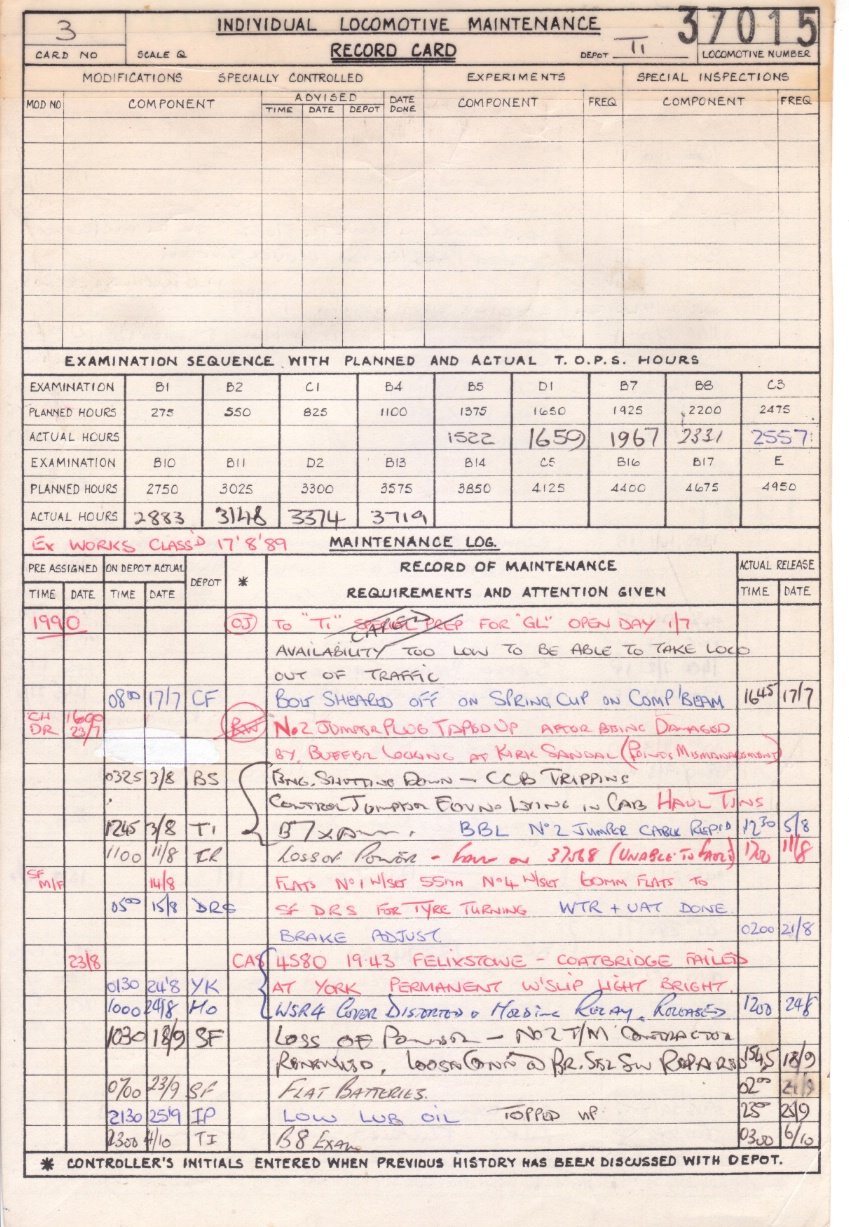 3 INDIVIDUAL LOCOMOTIVE MAINTENANCE 37015
CARD NO SCALE Q RECORD CARD DEPOT TI LOCOMOTIVE NUMBER
MODIFICATIONS SPECIALLY CONTROLLED EXPERIMENTS SPECIAL INSPECTIONS
MOD NO COMPONENT ADVISED DATE DONE COMPONENT FREQ COMPONENT FREQ
TIME DATE DEPOT
EXAMINATION SEQUENCE WITH PLANNED AND ACTUAL T.O.P.S. HOURS
EXAMINATION B1 B2 C1 B4 B5 D1 B7 B8 C3
PLANNED HOURS 275 550 825 1100 1375 1650 1925 2200 2475
ACTUAL HOURS 1522 1659 1967 2331 2557
EXAMINATION B10 B11 D2 B13 B14 C5 B16 B17 E
PLANNED HOURS 2750 3025 3300 3575 3850 4125 4400 4675 4950
ACTUAL HOURS 2883 3148 3374 3719
EX WORKS CLASS'D 17'8'89 MAINTENANCE LOG.
PRE ASSIGNED ON DEPOT ACTUAL DEPOT * RECORD OF MAINTENANCE ACTUAL RELEASE
TIME DATE TIME DATE REQUIREMENTS AND ATTENTION GIVEN TIME DATE
1990 OJ TO "TI" PREP FOR "GL" OPEN DAY 1/7
AVAILABILITY TOO LOW TO BE ABLE TO TAKE LOCO
OUT OF TRAFFIC
0800 17/7 CF BOLT SHEARED OFF ON SPRING CUP ON COMP/BEAM 1645 17/7
CH DR 1600 23/7 No2 JUMPER PLUG TAPED UP AFTER BEING DAMAGED
BY BUFFER LOCKING AT KIRK SANDAL (POINTS MISMANAGEMENT)
0325 3/8 BS ENG. SHUTTING DOWN - CCB TRIPPING
CONTROL JUMPER FOUND LYING IN CAB HAUL TINS
1245 3/8 TI B7 XAM. BBL No2 JUMPER CABLE REP'D 1230 5/8
1100 11/8 IR LOSS OF POWER - 37568 (UNABLE TO HAUL) 11/8
SF M/F 14/8 FLATS No1 W/SET 55MM No4 W/SET 60MM FLATS TO
0500 15/8 DRS SF DRS FOR TYRE TURNING WTR + UAT DONE
BRAKE ADJUST 0200 21/8
23/8 CAS 4S80 19.43 FELIXSTOWE - COATBRIDGE FAILED
AT YORK PERMANENT W'SLIP LIGHT BRIGHT.
0130 24'8 YK
1000 24/8 HO WSR4 COVER DISTORTED & HOLDING RELAY. RELEASED 1200 24/8
1030 18/9 SF LOSS OF POWER - No2 T/M CONTRACTOR
RENEWED, LOOSE CONN @ BR. SEL SW REPAIRED 1545 18/9
0700 23/9 SF FLAT BATTERIES. 0200
2130 25/9 IP LOW LUB OIL TOPPED UP
2300 4/10 TI B8 EXAM 0300 6/10
* CONTROLLER'S INITIALS ENTERED WHEN PREVIOUS HISTORY HAS BEEN DISCUSSED WITH DEPOT.